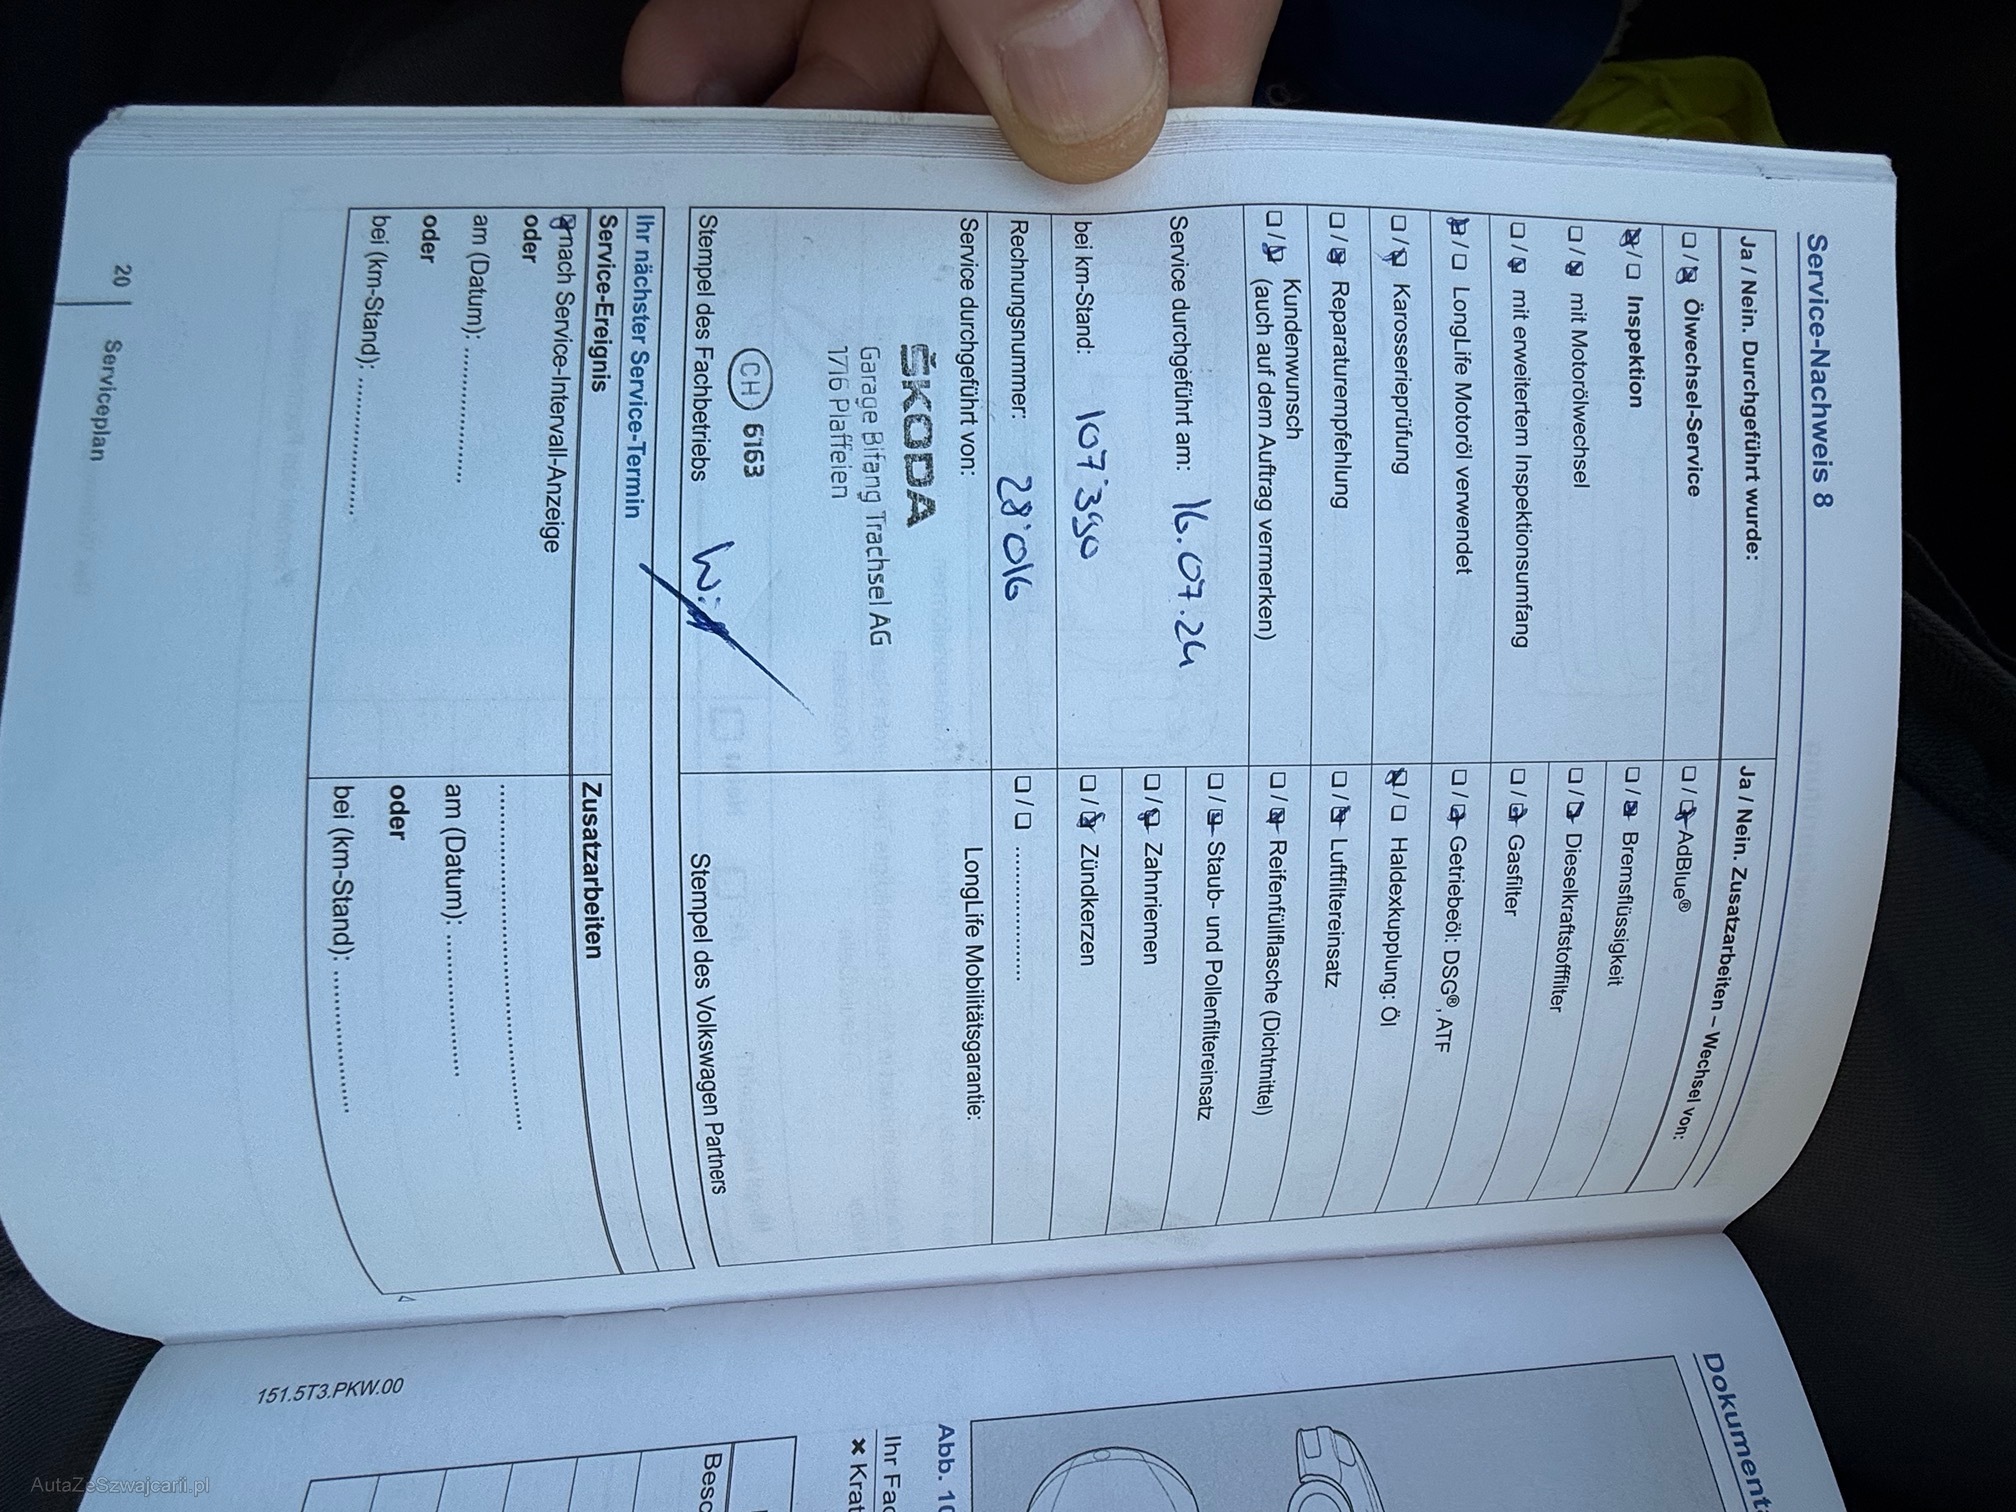 Service-Nachweis 8
Ja / Nein. Durchgeführt wurde:
☐ / ☒ Ölwechsel-Service
☒ / ☐ Inspektion
☐ / ☒ mit Motorölwechsel
☐ / ☒ mit erweitertem Inspektionsumfang
☒ / ☐ LongLife Motoröl verwendet
☐ / ☒ Karosserieprüfung
☐ / ☒ Reparaturempfehlung
☐ / ☒ Kundenwunsch
(auch auf dem Auftrag vermerken)
Service durchgeführt am: 16.07.24
bei km-Stand: 107'390
Rechnungsnummer: 28'016
Ja / Nein. Zusatzarbeiten – Wechsel von:
☐ / ☒ AdBlue®
☐ / ☒ Bremsflüssigkeit
☐ / ☒ Dieselkraftstofffilter
☐ / ☒ Gasfilter
☐ / ☒ Getriebeöl: DSG®, ATF
☒ / ☐ Haldexkupplung: Öl
☐ / ☒ Luftfiltereinsatz
☐ / ☒ Reifenfüllflasche (Dichtmittel)
☐ / ☒ Staub- und Pollenfiltereinsatz
☐ / ☒ Zahnriemen
☐ / ☒ Zündkerzen
☐ / ☐ ..................
Service durchgeführt von:
ŠKODA
Garage Bifang Trachsel AG
1716 Plaffeien
CH 6163
Stempel des Fachbetriebs
LongLife Mobilitätsgarantie:
Stempel des Volkswagen Partners
Ihr nächster Service-Termin
Service-Ereignis
☒ nach Service-Intervall-Anzeige
oder
am (Datum): ....................
oder
bei (km-Stand): ....................
Zusatzarbeiten
........................................
am (Datum): ....................
oder
bei (km-Stand): ....................
20 | Serviceplan
151.5T3.PKW.00
Abb. 10
Ihr Fac
× Krat
Besc
AutaZeSzwajcarii.pl